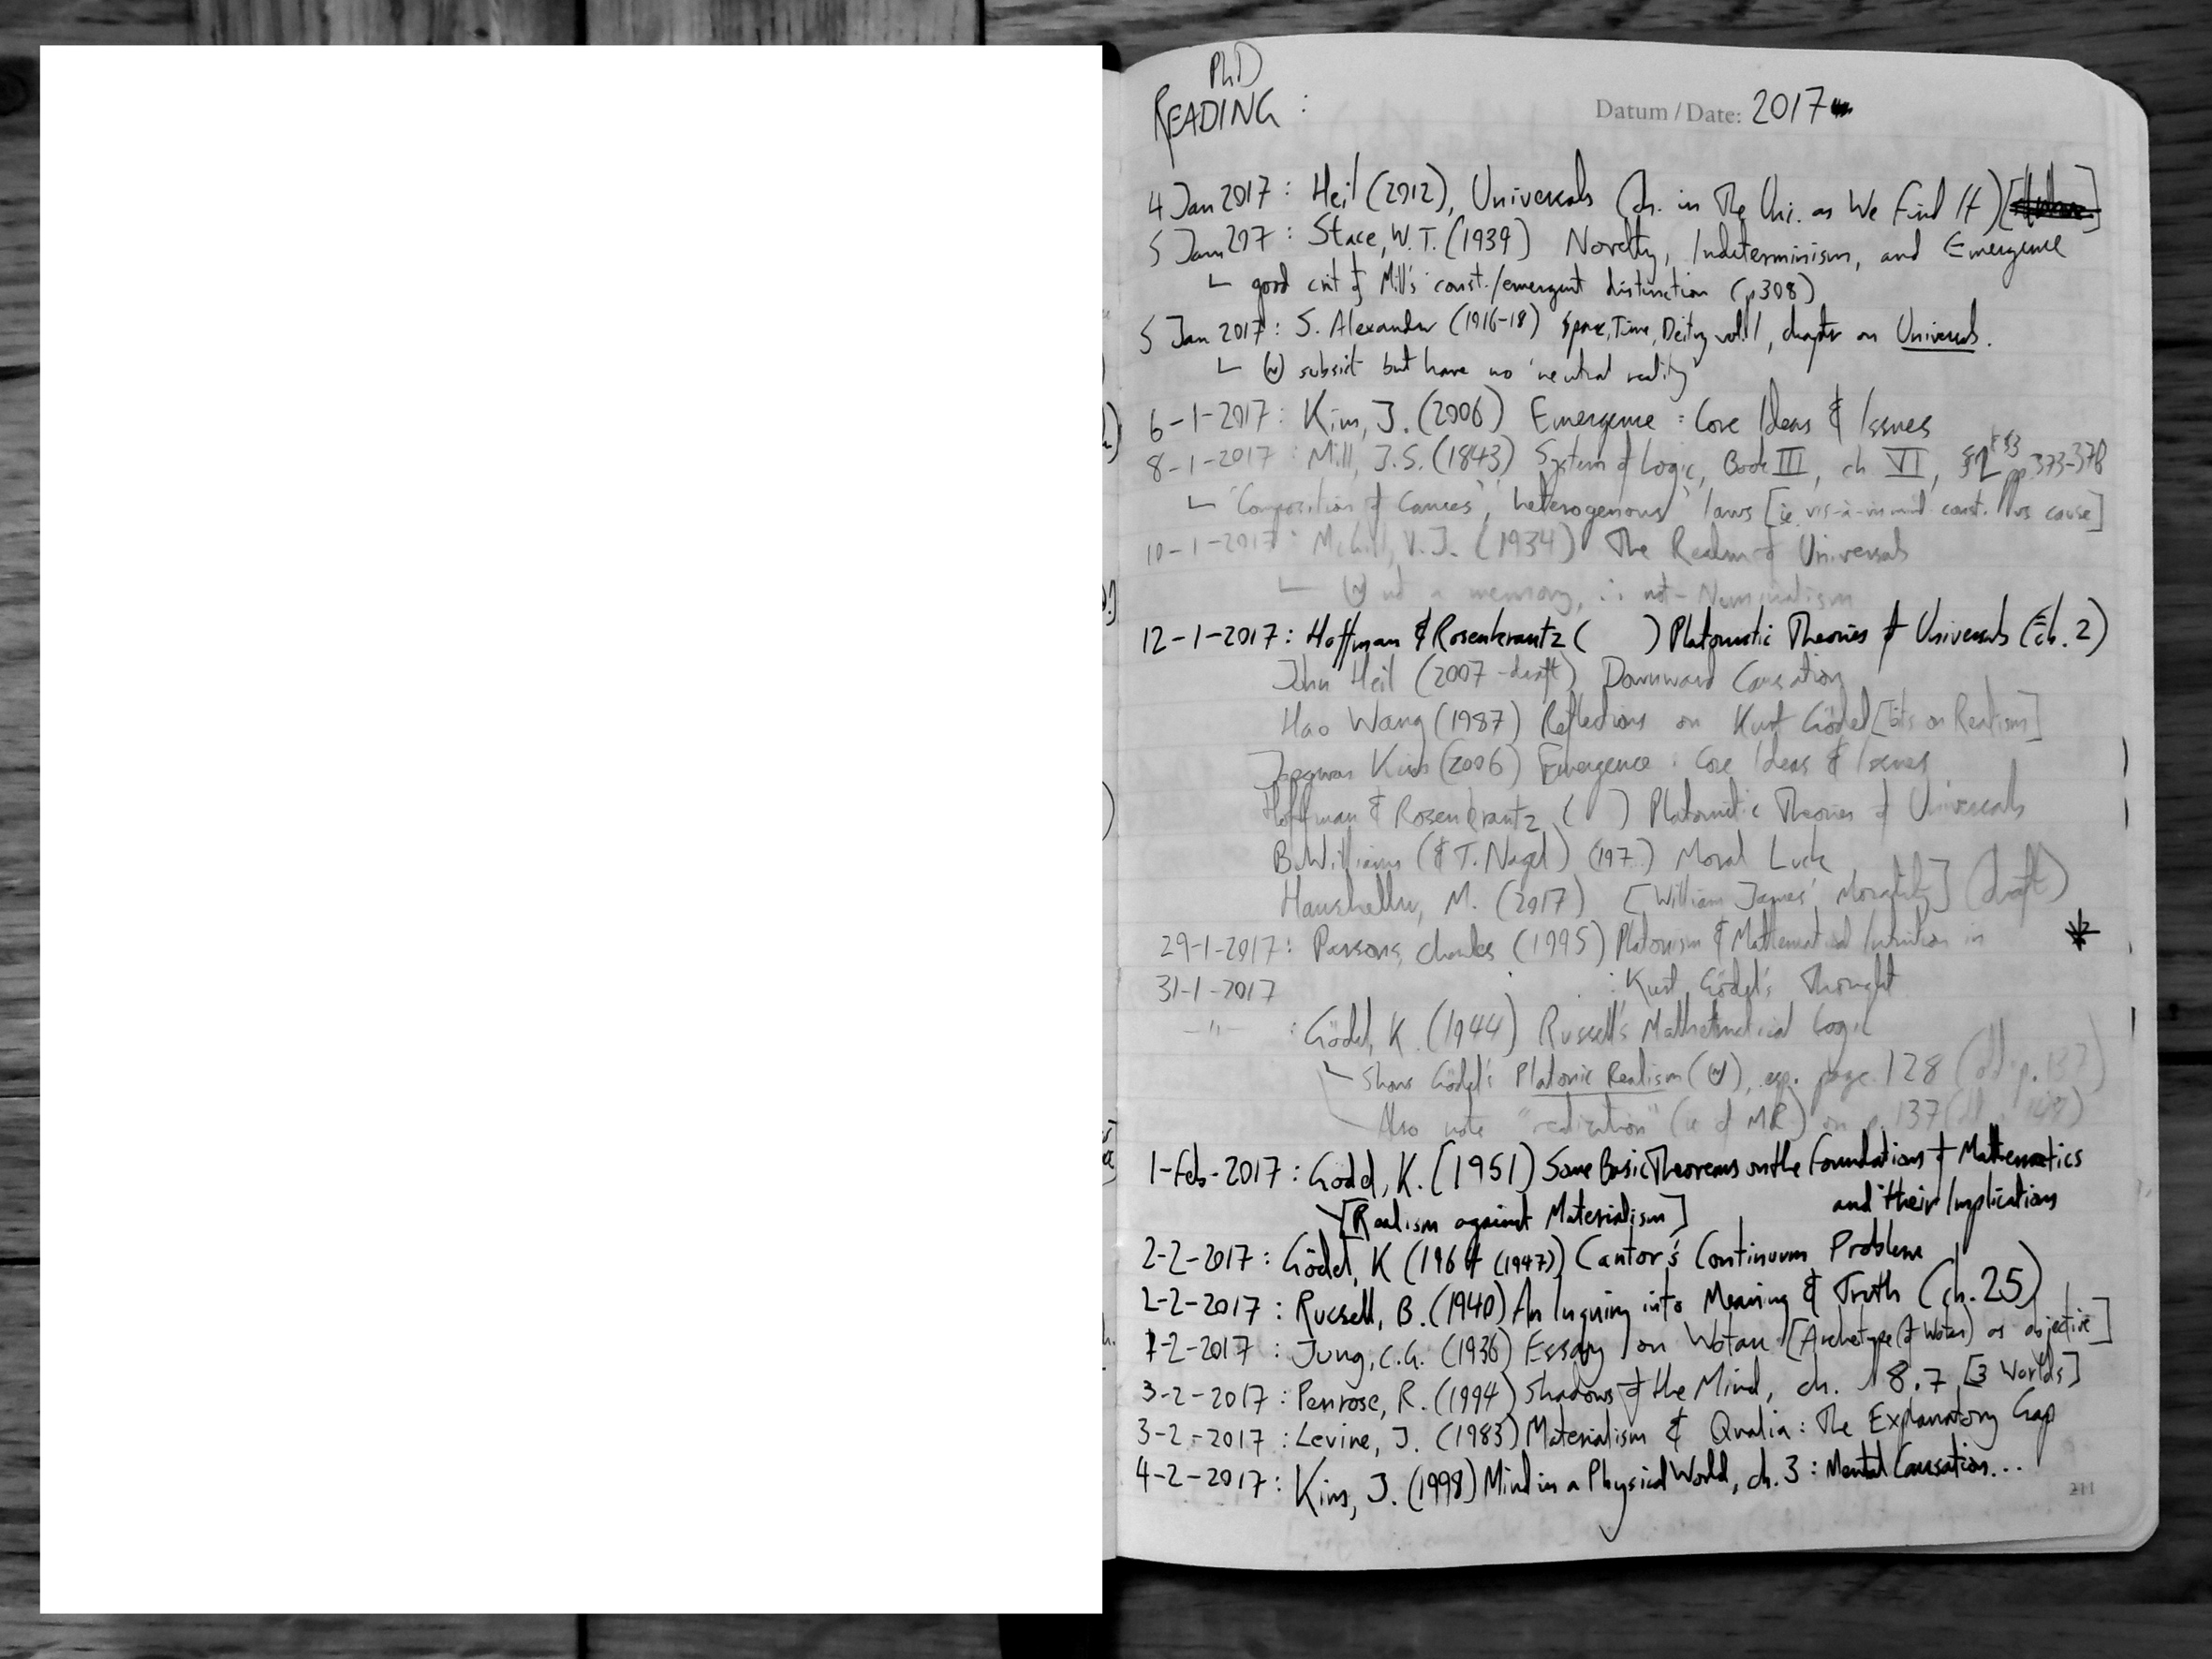 PhD
READING :
Datum / Date: 2017
4 Jan 2017 : Heil (2012), Universals (ch. in The Uni. as We Find It)
5 Jan 2017 : Stace, W.T. (1939) Novelty, Indeterminism, and Emergence
good crit of Mill's const./emergent distinction (p308)
5 Jan 2017 : S. Alexander (1916-18) Space, Time, Deity vol. 1, chapter on Universals.
subsist but have no 'neutral reality'
6-1-2017 : Kim, J. (2006) Emergence : Core Ideas & Issues
8-1-2017 : Mill, J.S. (1843) System of Logic, Book III, ch VI, pp 373-378
'Composition of Causes', 'heterogenous' laws [ie vis-à-vis mind const. vs cause]
10-1-2017 : McGill, V.J. (1934) The Realm of Universals
not a memory, ∴ not Nominalism
12-1-2017 : Hoffman & Rosenkrantz ( ) Platonistic Theories of Universals (ch. 2)
John Heil (2007 - draft) Downward Causation
Hao Wang (1987) Reflections on Kurt Gödel [bits on Realism]
Jaegwon Kim (2006) Emergence : Core Ideas & Issues
Hoffman & Rosenkrantz ( ) Platonistic Theories of Universals
B. Williams (& T. Nagel) (197 ) Moral Luck
Hauskeller, M. (2017) [William James' Morality] (draft)
29-1-2017 : Parsons, Charles (1995) Platonism & Mathematical Intuition in
31-1-2017 : Kurt Gödel's Thought
-"- : Gödel, K. (1944) Russell's Mathematical Logic
Shows Gödel's Platonic Realism (U), esp. page 128 (old p. 137)
Also note on p. 137
1-Feb-2017 : Gödel, K. (1951) Some Basic Theorems on the Foundations of Mathematics
and their Implications
[Realism against Materialism]
2-2-2017 : Gödel, K (1964 (1947)) Cantor's Continuum Problem
2-2-2017 : Russell, B. (1940) An Inquiry into Meaning & Truth (ch. 25)
2-2-2017 : Jung, C.G. (1936) Essay on Wotan [Archetype (of Wotan) as objective]
3-2-2017 : Penrose, R. (1994) Shadows of the Mind, ch. 8.7 [3 Worlds]
3-2-2017 : Levine, J. (1983) Materialism & Qualia : The Explanatory Gap
4-2-2017 : Kim, J. (1998) Mind in a Physical World, ch. 3 : Mental Causation...
211